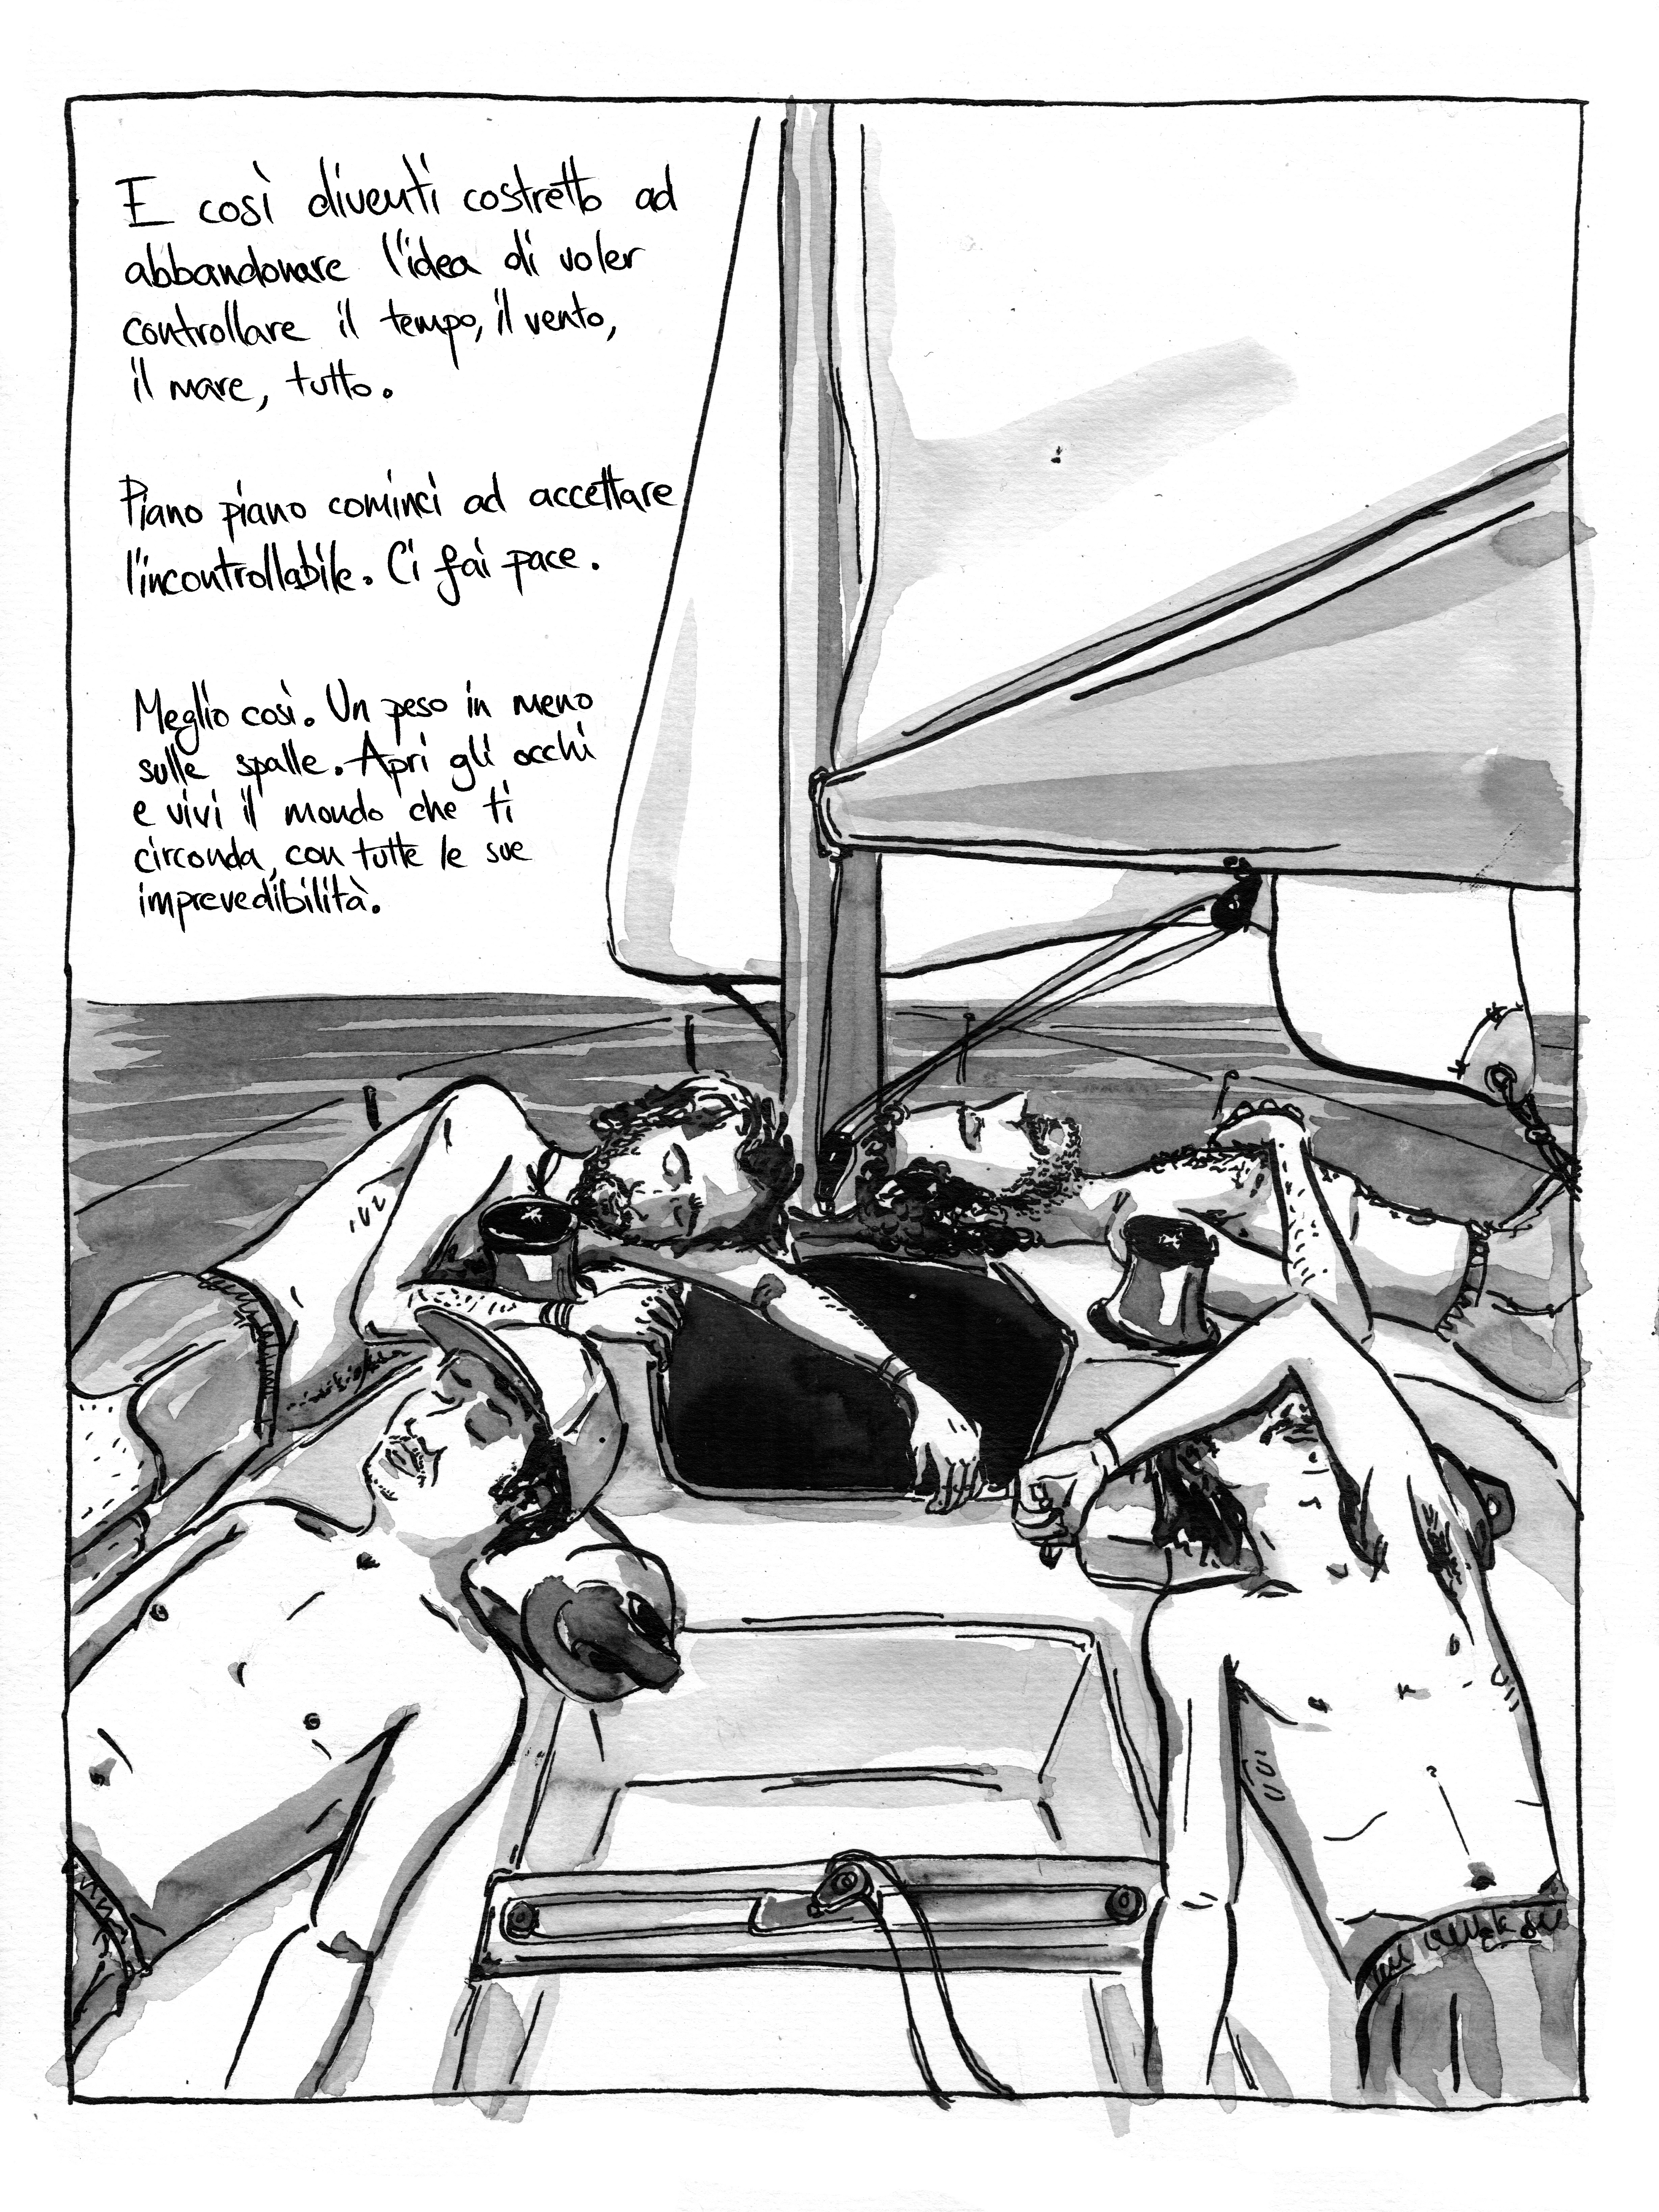 E così diventi costretto ad
abbandonare l'idea di voler
controllare il tempo, il vento,
il mare, tutto.
Piano piano cominci ad accettare
l'incontrollabile. Ci fai pace.
Meglio così. Un peso in meno
sulle spalle. Apri gli occhi
e vivi il mondo che ti
circonda, con tutte le sue
imprevedibilità.